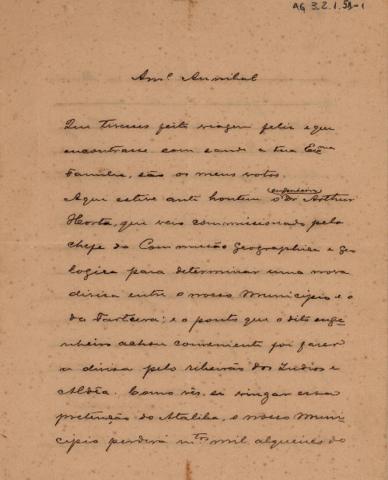 AG 3.2.1.58-1
Amº Annibal
Que tivesses feito viagem feliz e que
encontrasse com saude a tua Exma
Familia, são os meus votos.
Aqui esteve ante hontem o engenheiro Dr Arthur
Horta, que veio commissionado pelo
chefe da Commissão Geographica e Geo
logica para determinar uma nova
divisa entre o nosso Municipio e o
da Fartura; e o ponto que o dito enge
nheiro achou conveniente foi fazer
a divisa pelo ribeirão dos Indios e
Aldêa. Como vês, si vingar essa
pretenção do Ataliba, o nosso Muni-
cipio perderá mtos mil alqueires de